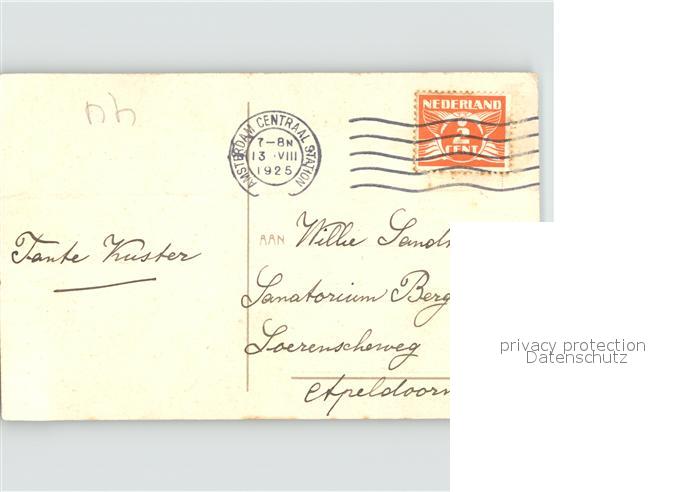 NEDERLAND
2
CENT
AMSTERDAM CENTRAAL STATION
7-8N
13 VIII
1925
AAN Willie
Tante Kuster
Sanatorium Berg
Soerenscheweg
Apeldoorn
privacy protection
Datenschutz